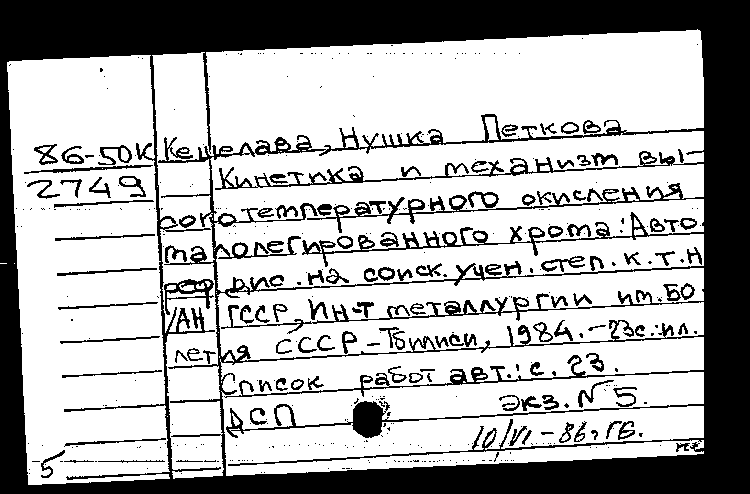 86-50К Кешелава, Нушка Петкова
2749 Кинетика и механизм вы-
сокотемпературного окисления
малолегированного хрома: Авто-
реф. дис. на соиск. учен. степ. к.т.н
/АН ГССР, Ин-т металлургии им. 50-
летия СССР. - Тбилиси, 1984. - 23с.: ил.
Список работ авт.: с. 23.
ДСП экз. № 5.
10/VI - 86г ГБ.
5